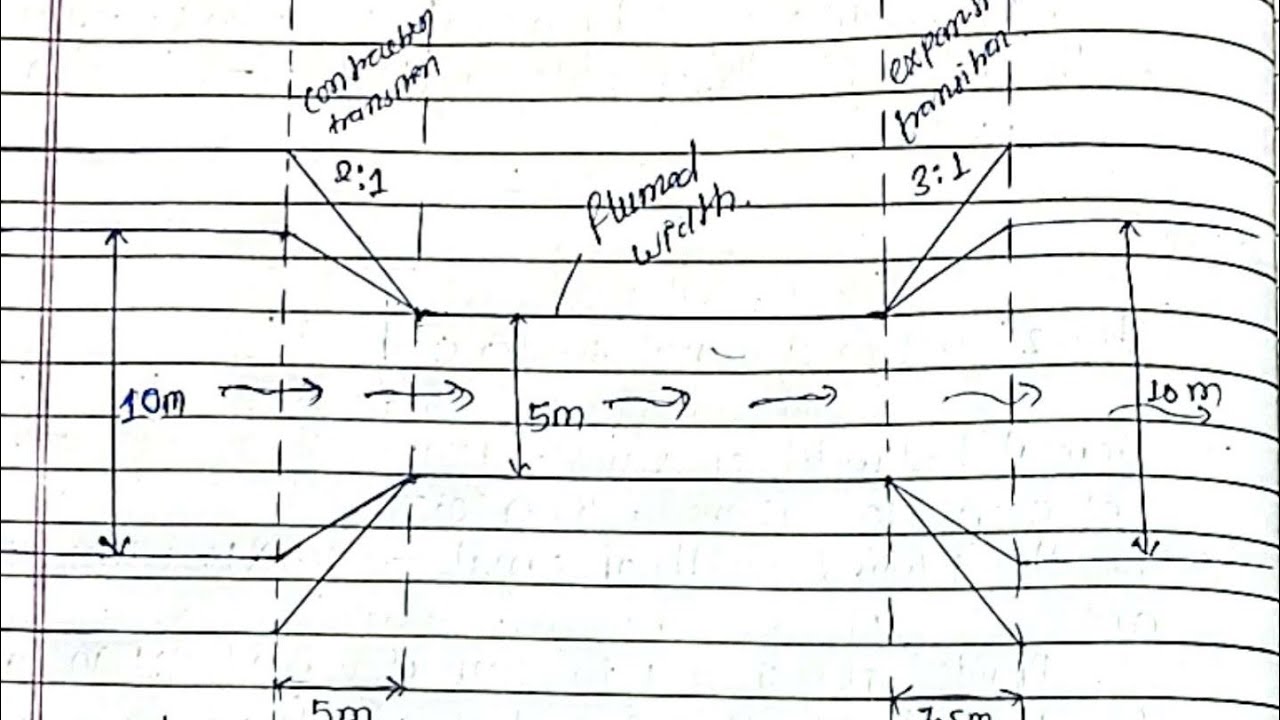 contraction
transition
expansi
transition
2:1
3:1
flumed
width.
10m
5m
10 m
5m
7.5m